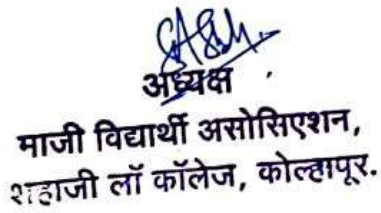 अध्यक्ष
माजी विद्यार्थी असोसिएशन,
शहाजी लॉ कॉलेज, कोल्हापूर.